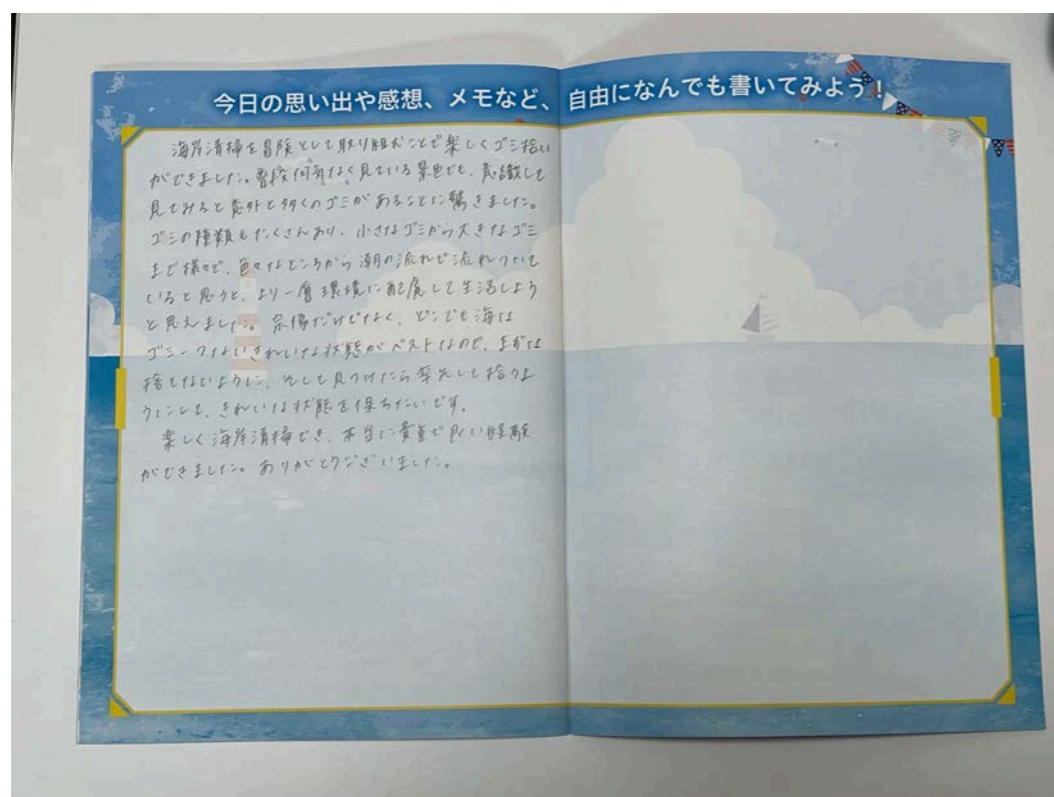 今日の思い出や感想、メモなど、自由になんでも書いてみよう！
海岸清掃を冒険として取り組むことで楽しくゴミ拾い
ができました。普段何気なく見ている景色でも、意識して
見てみると意外と多くのゴミがあることに驚きました。
ゴミの種類もたくさんあり、小さなゴミから大きなゴミ
まで様々で、色々なところから潮の流れで流れついて
いると思うと、より一層環境に配慮して生活しよう
と思えました。宗像だけでなく、どこでも海は
ゴミ一つないきれいな状態がベストなので、まずは
捨てないように、そして見つけたら率先して拾うよ
うにして、きれいな状態を保ちたいです。
楽しく海岸清掃でき、本当に貴重で良い経験
ができました。ありがとうございました。